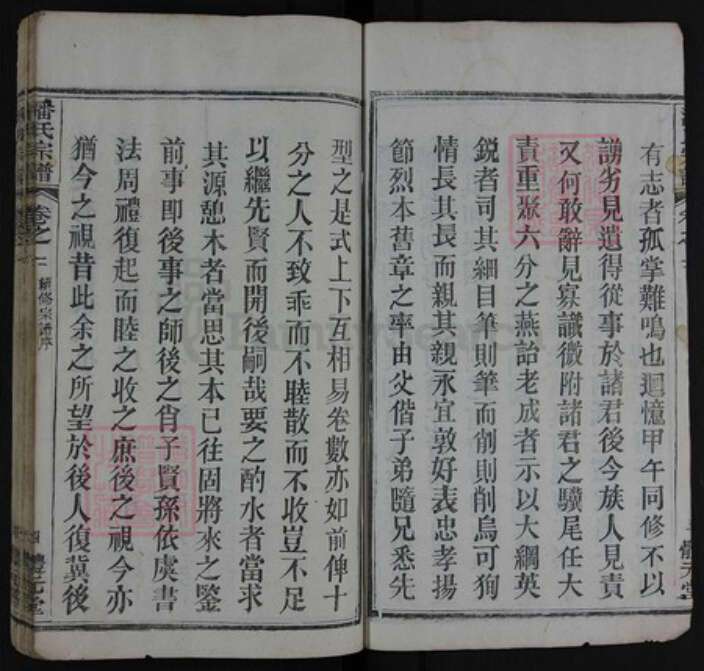 有志者孤掌難鳴也迴憶甲午同修不以
謭劣見遺得從事於諸君後今族人見責
又何敢辭見寡識微附諸君之驥尾任大
責重聚六分之燕詒老成者示以大綱英
鋭者司其細目筆則筆而削則削烏可狥
情長其長而親其親永宜敦好表忠孝揚
節烈本舊章之率由父偕子弟隨兄悉先
型之是式上下互相易卷數亦如前俾十
分之人不致乖而不睦散而不收豈不足
以繼先賢而開後嗣哉要之酌水者當求
其源憩木者當思其本已往固將來之鑒
前事即後事之師後之肖子賢孫依虞書
法周禮復起而睦之收之庶後之視今亦
猶今之視昔此余之所望於後人復冀後
潘氏宗譜
卷之
續修宗譜序